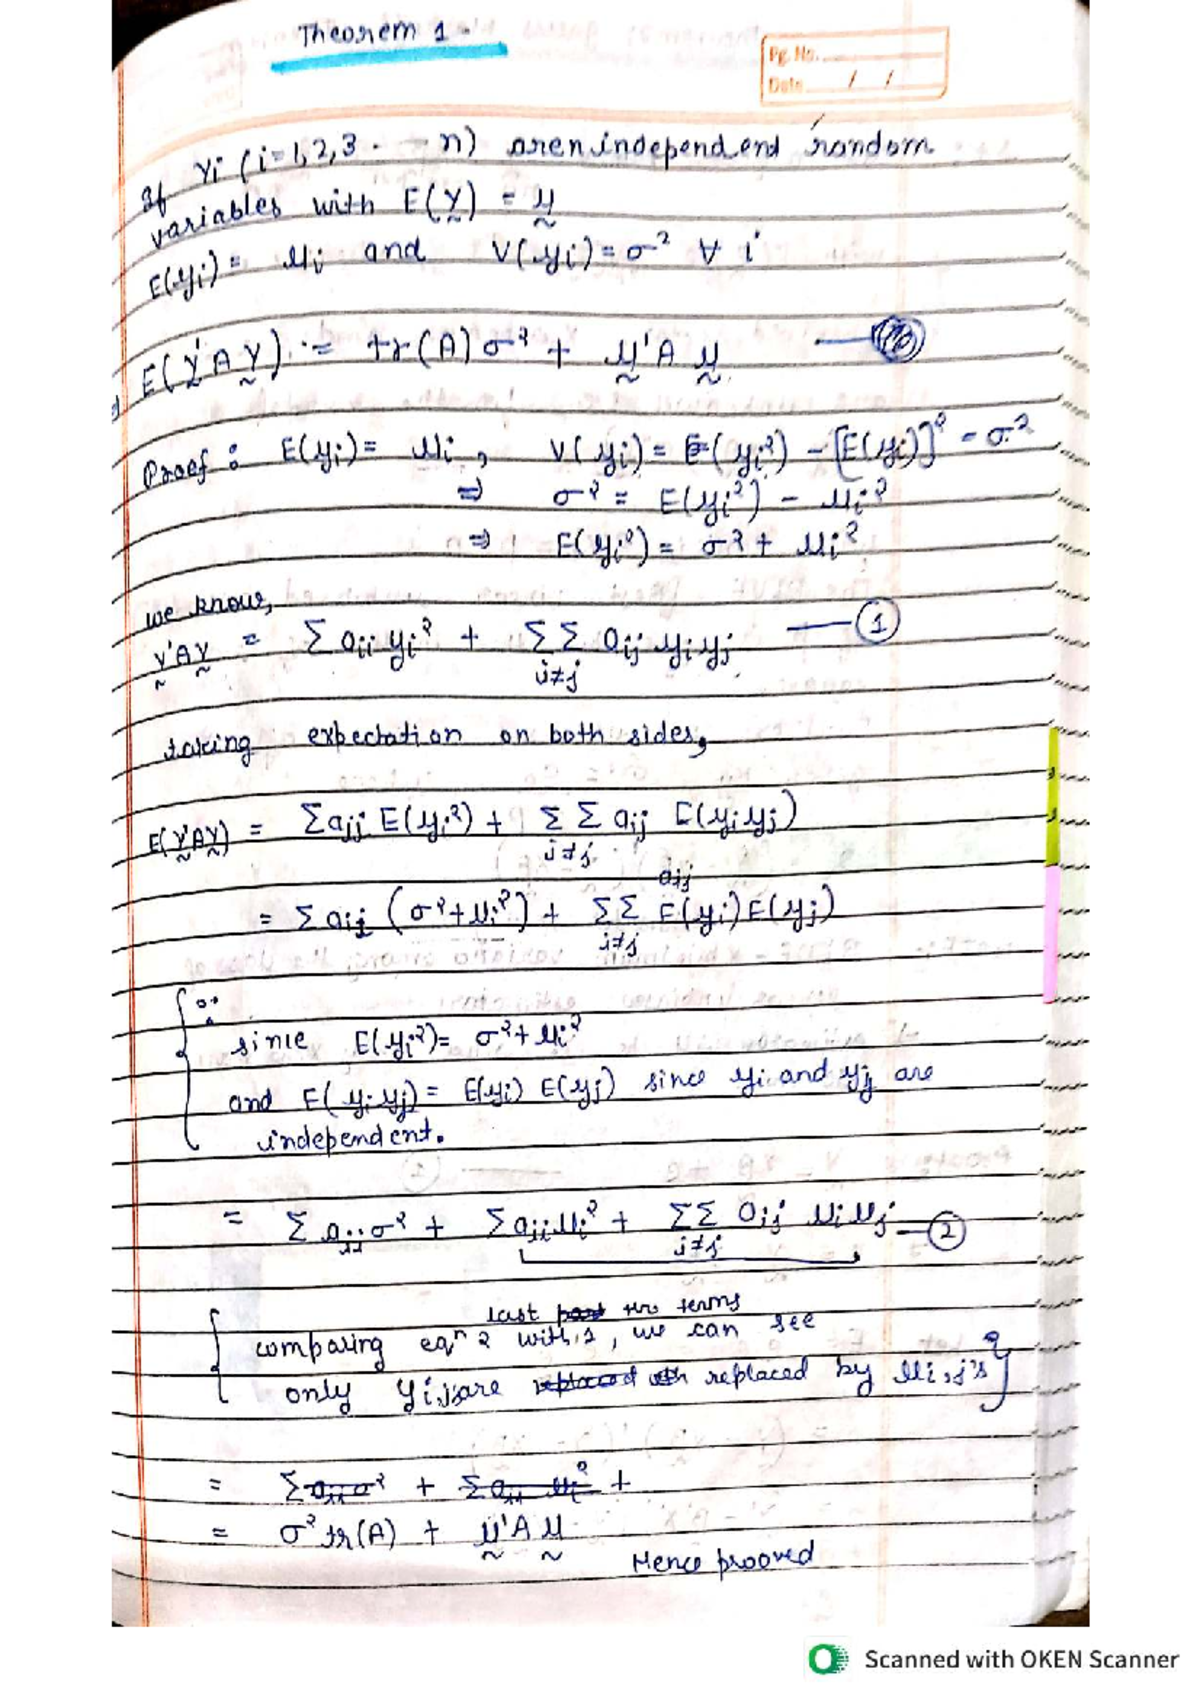 Theorem 1 -
Pg. No.
Date / /
If Yi (i=1,2,3 . - n) are n independent random
variables with E(Y) = μ
E(yi) = μi and V(yi) = σ² ∀ i
E(Y'AY) = tr(A)σ² + μ'Aμ
Proof : E(yi) = μi , V(yi) = E(yi²) - [E(yi)]² = σ²
⇒ σ² = E(yi²) - μi²
⇒ E(yi²) = σ² + μi²
we know,
Y'AY = Σ aii yi² + ΣΣ aij yi yj — ①
i≠j
taking expectation on both sides,
E(Y'AY) = Σajj E(yi²) + ΣΣ aij E(yi yj)
i≠j
aij
= Σ aij (σ²+μi²) + ΣΣ E(yi)E(yj)
i≠j
∵
since E(yi²) = σ²+μi²
and E(yi yj) = E(yi) E(yj) since yi and yj are
independent.
= Σ aii σ² + Σ aii μi² + ΣΣ aij μi μj — ②
i≠j
last two terms
comparing eqn 2 with 1, we can see
only yi,j are replaced by μi,j's }
= Σ aii σ² + Σ aii μi² +
= σ² tr(A) + μ'Aμ
Hence prooved
Scanned with OKEN Scanner